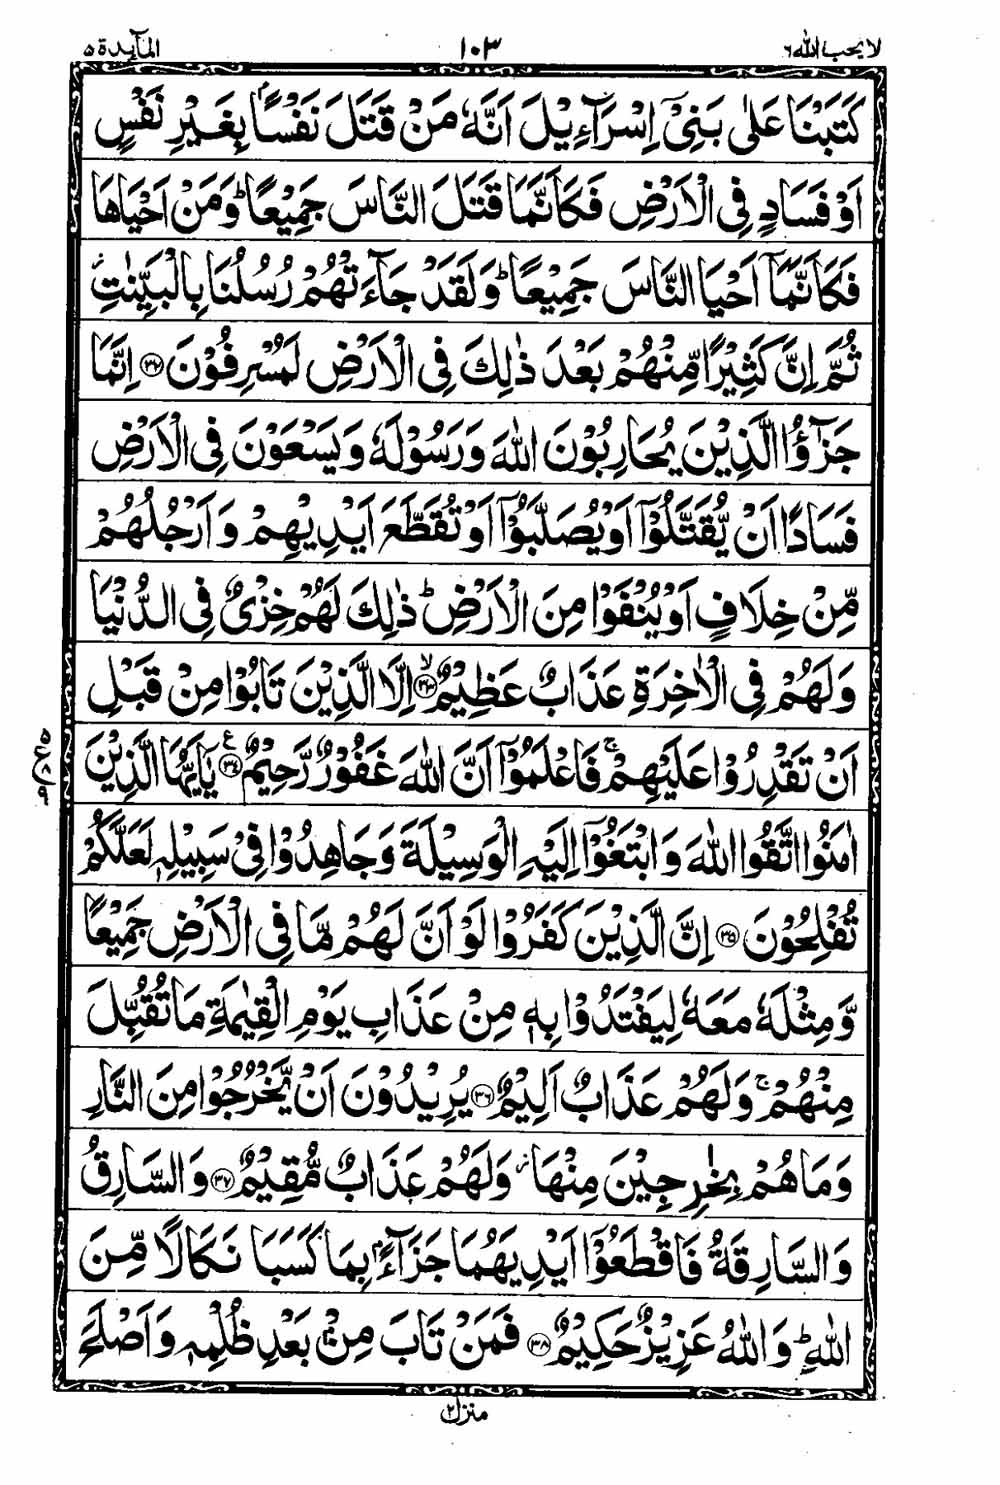 لا یحب الله ٦ ١٠٣ المآىِٕدة ٥
كَتَبْنَا عَلٰى بَنِیْۤ اِسْرَآءِیْلَ اَنَّهٗ مَنْ قَتَلَ نَفْسًۢا بِغَیْرِ نَفْسٍ
اَوْ فَسَادٍ فِی الْاَرْضِ فَكَاَنَّمَا قَتَلَ النَّاسَ جَمِیْعًا ؕ وَ مَنْ اَحْیَاهَا
فَكَاَنَّمَاۤ اَحْیَا النَّاسَ جَمِیْعًا ؕ وَ لَقَدْ جَآءَتْهُمْ رُسُلُنَا بِالْبَیِّنٰتِ ؗ
ثُمَّ اِنَّ كَثِیْرًا مِّنْهُمْ بَعْدَ ذٰلِكَ فِی الْاَرْضِ لَمُسْرِفُوْنَ ﴿۳۲﴾ اِنَّمَا
جَزٰٓؤُا الَّذِیْنَ یُحَارِبُوْنَ اللّٰهَ وَ رَسُوْلَهٗ وَ یَسْعَوْنَ فِی الْاَرْضِ
فَسَادًا اَنْ یُّقَتَّلُوْۤا اَوْ یُصَلَّبُوْۤا اَوْ تُقَطَّعَ اَیْدِیْهِمْ وَ اَرْجُلُهُمْ
مِّنْ خِلَافٍ اَوْ یُنْفَوْا مِنَ الْاَرْضِ ؕ ذٰلِكَ لَهُمْ خِزْیٌ فِی الدُّنْیَا
وَ لَهُمْ فِی الْاٰخِرَةِ عَذَابٌ عَظِیْمٌ ۙ﴿۳۳﴾ اِلَّا الَّذِیْنَ تَابُوْا مِنْ قَبْلِ
اَنْ تَقْدِرُوْا عَلَیْهِمْ ۚ فَاعْلَمُوْۤا اَنَّ اللّٰهَ غَفُوْرٌ رَّحِیْمٌ ﴿۳۴﴾ ع یٰۤاَیُّهَا الَّذِیْنَ
اٰمَنُوا اتَّقُوا اللّٰهَ وَ ابْتَغُوْۤا اِلَیْهِ الْوَسِیْلَةَ وَ جَاهِدُوْا فِیْ سَبِیْلِهٖ لَعَلَّكُمْ
تُفْلِحُوْنَ ﴿۳۵﴾ اِنَّ الَّذِیْنَ كَفَرُوْا لَوْ اَنَّ لَهُمْ مَّا فِی الْاَرْضِ جَمِیْعًا
وَّ مِثْلَهٗ مَعَهٗ لِیَفْتَدُوْا بِهٖ مِنْ عَذَابِ یَوْمِ الْقِیٰمَةِ مَا تُقُبِّلَ
مِنْهُمْ ۚ وَ لَهُمْ عَذَابٌ اَلِیْمٌ ﴿۳۶﴾ یُرِیْدُوْنَ اَنْ یَّخْرُجُوْا مِنَ النَّارِ
وَ مَا هُمْ بِخٰرِجِیْنَ مِنْهَا ؗ وَ لَهُمْ عَذَابٌ مُّقِیْمٌ ﴿۳۷﴾ وَ السَّارِقُ
وَ السَّارِقَةُ فَاقْطَعُوْۤا اَیْدِیَهُمَا جَزَآءًۢ بِمَا كَسَبَا نَكَالًا مِّنَ
اللّٰهِ ؕ وَ اللّٰهُ عَزِیْزٌ حَكِیْمٌ ﴿۳۸﴾ فَمَنْ تَابَ مِنْۢ بَعْدِ ظُلْمِهٖ وَ اَصْلَحَ
منزل ۲